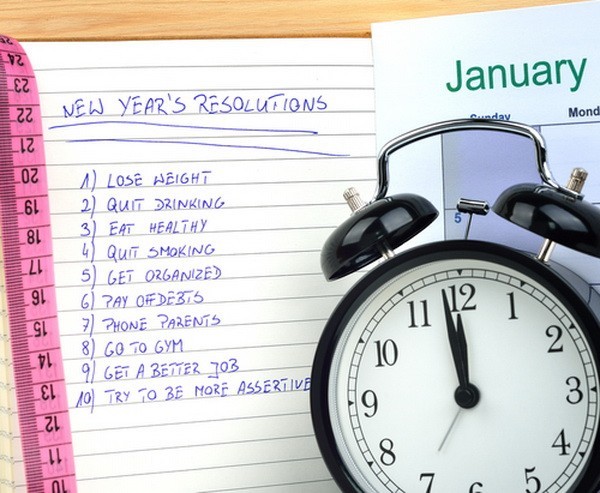 NEW YEAR'S RESOLUTIONS
1) LOSE WEIGHT
2) QUIT DRINKING
3) EAT HEALTHY
4) QUIT SMOKING
5) GET ORGANIZED
6) PAY OF DEBTS
7) PHONE PARENTS
8) GO TO GYM
9) GET A BETTER JOB
10) TRY TO BE MORE ASSERTIVE
January
Sunday Mond
5
11 12 1
10 2
9 3
8 4
7 5
24
23
22
21
20
19
18
17
16
15
14
13
12
11
10